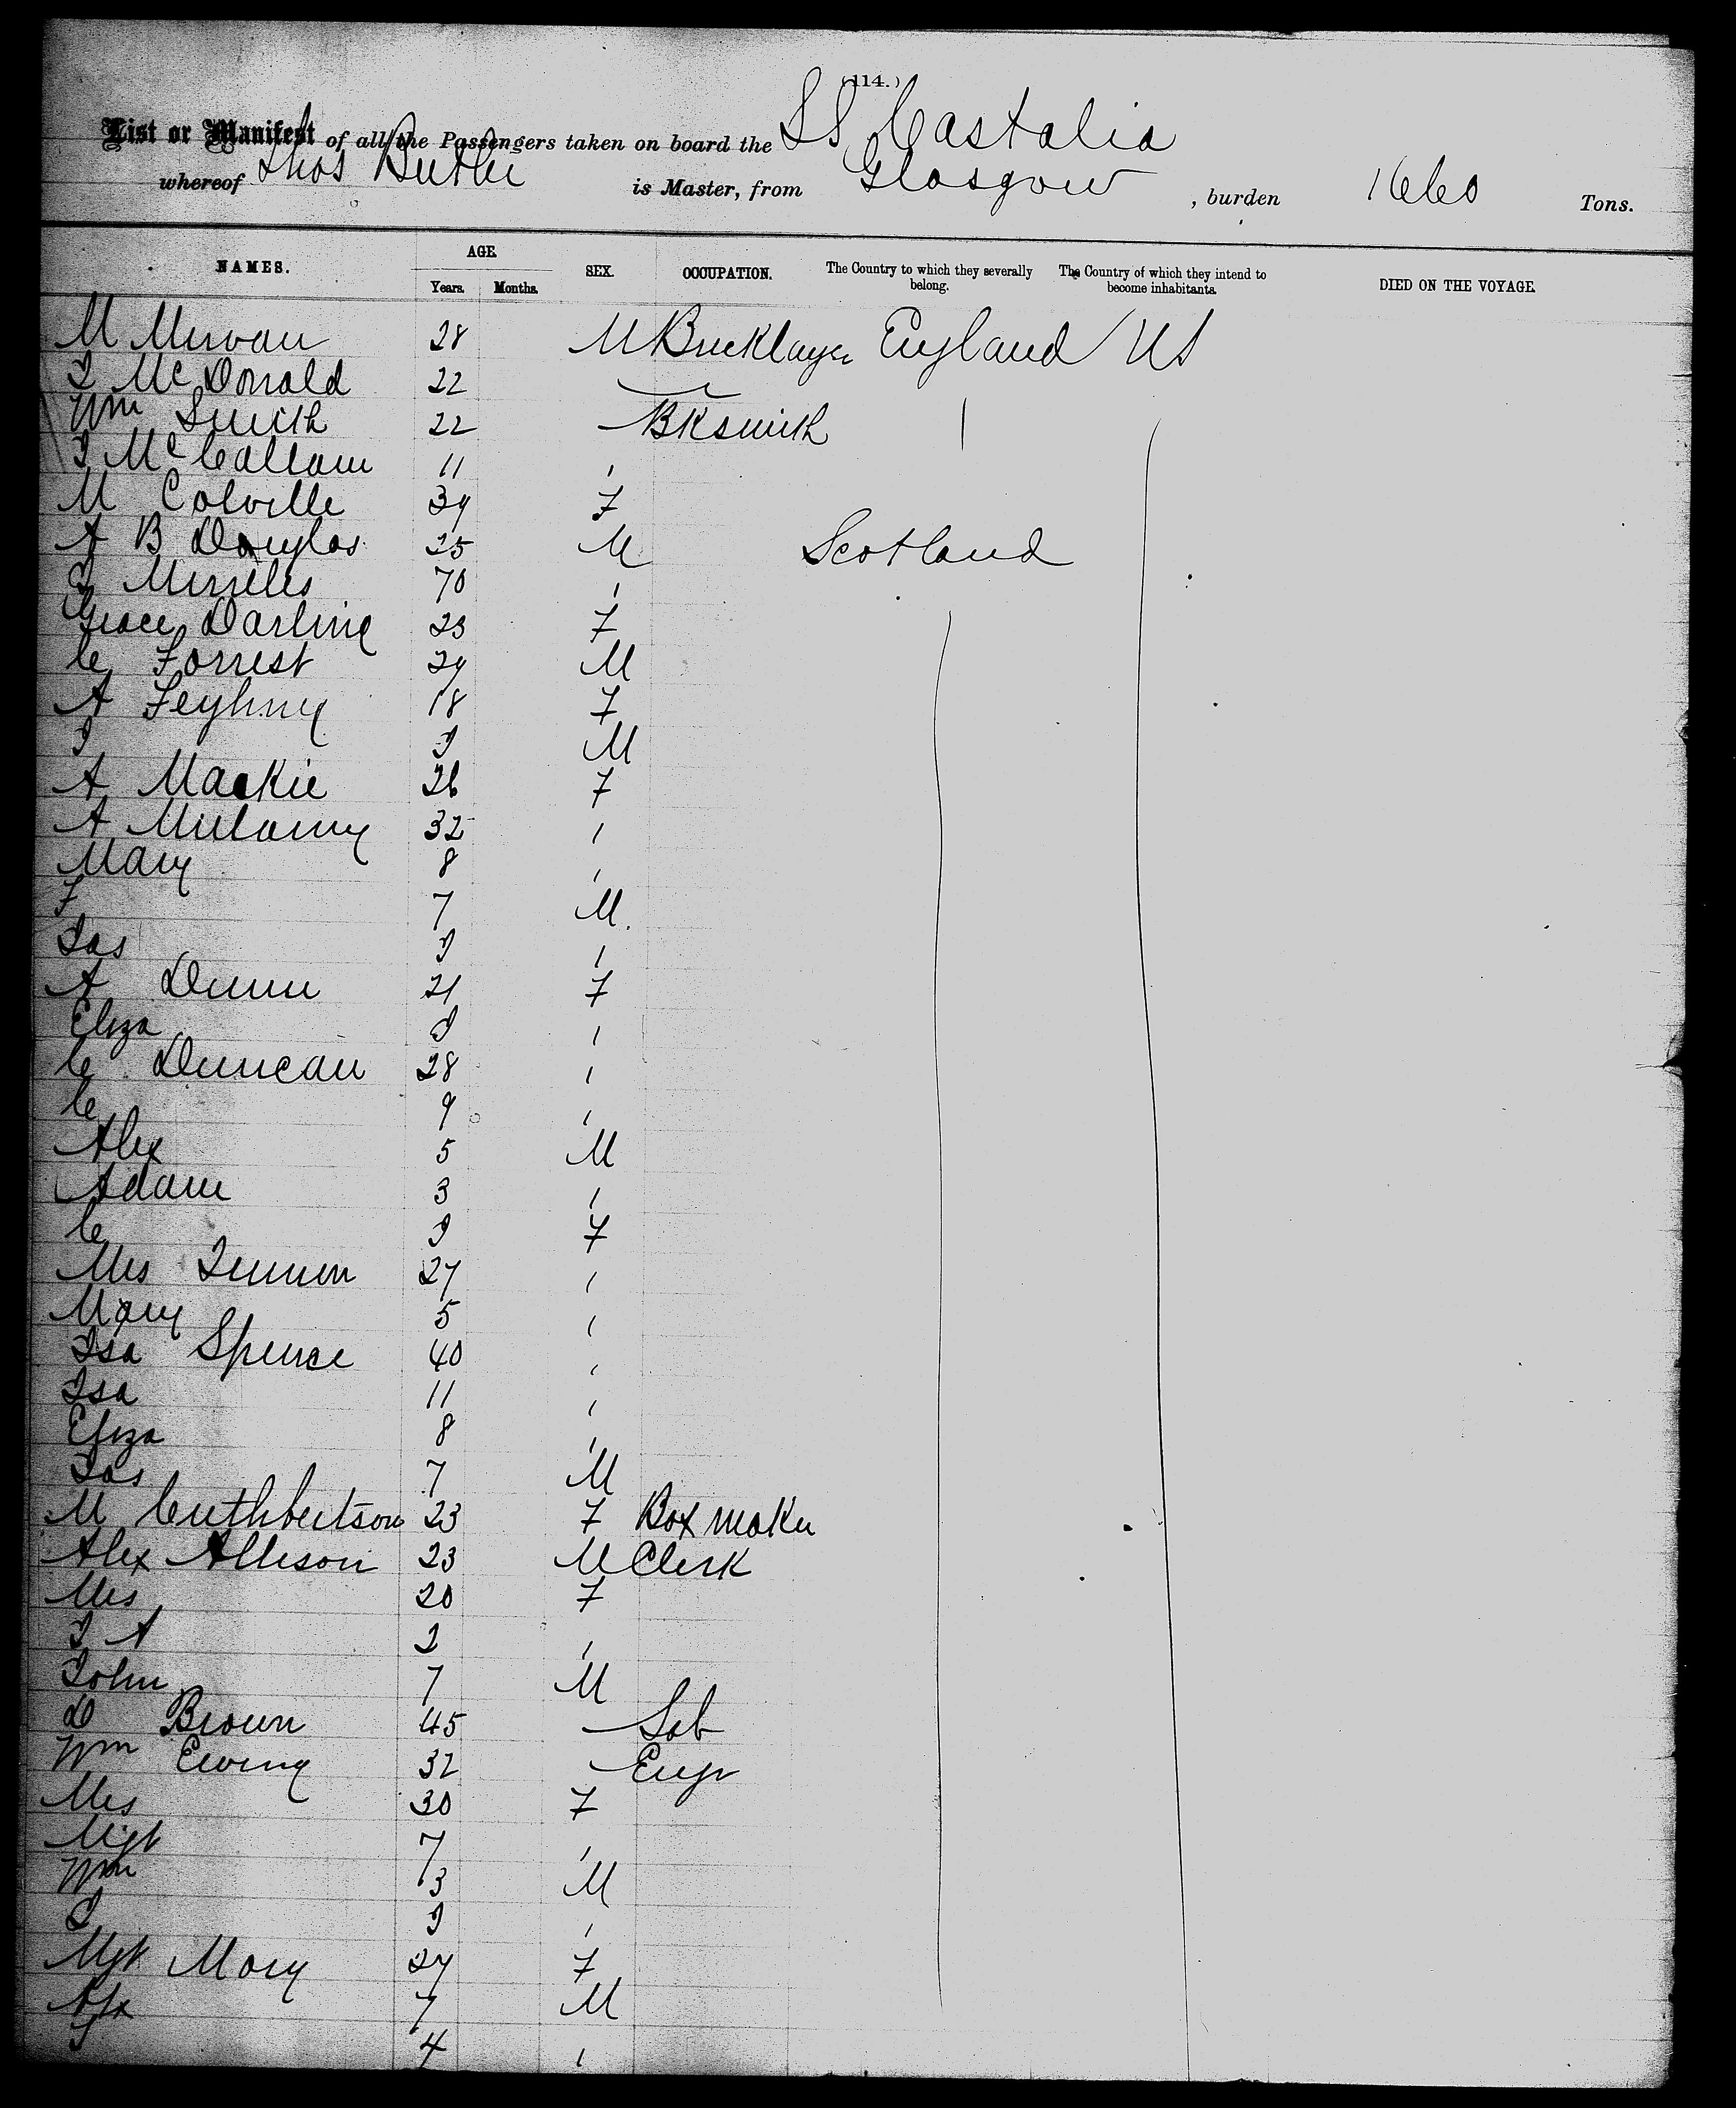 (114.)
List or Manifest of all the Passengers taken on board the SS Castalia
whereof Thos Butler is Master, from Glasgow, burden 1660 Tons.
NAMES. AGE. SEX. OCCUPATION. The Country to which they severally belong. The Country of which they intend to become inhabitants. DIED ON THE VOYAGE.
Years. Months.
M 28 M Bricklayer England US
J McDonald 22
Wm Smith 22 Bksmith
J McCallam 11
M Colville 39 F
A B Douglas 25 M Scotland
J Mirrelees 70
Grace Darling 23 F
C Forrest 29 M
A 18 F
J M
A Mackie 26 F
A 32
Mary 8
F 7 M
Jas
A Dunn 21 F
Eliza
C Duncan 28
C 9
Alex 5 M
Adam 3
C F
Mrs 27
Mary 5
Isa Spence 40
Isa 11
Eliza 8
Jas 7 M
M Cuthbertson 23 F Box maker
Alex Allison 23 M Clerk
Mrs 20 F
J A
John 7 M
D Brown 45 Lab
Wm Ewing 32 Engr
Mrs 30 F
Mgt 7
Wm 3 M
J
Mgt Mary 27 F
Alx 7 M
J 4